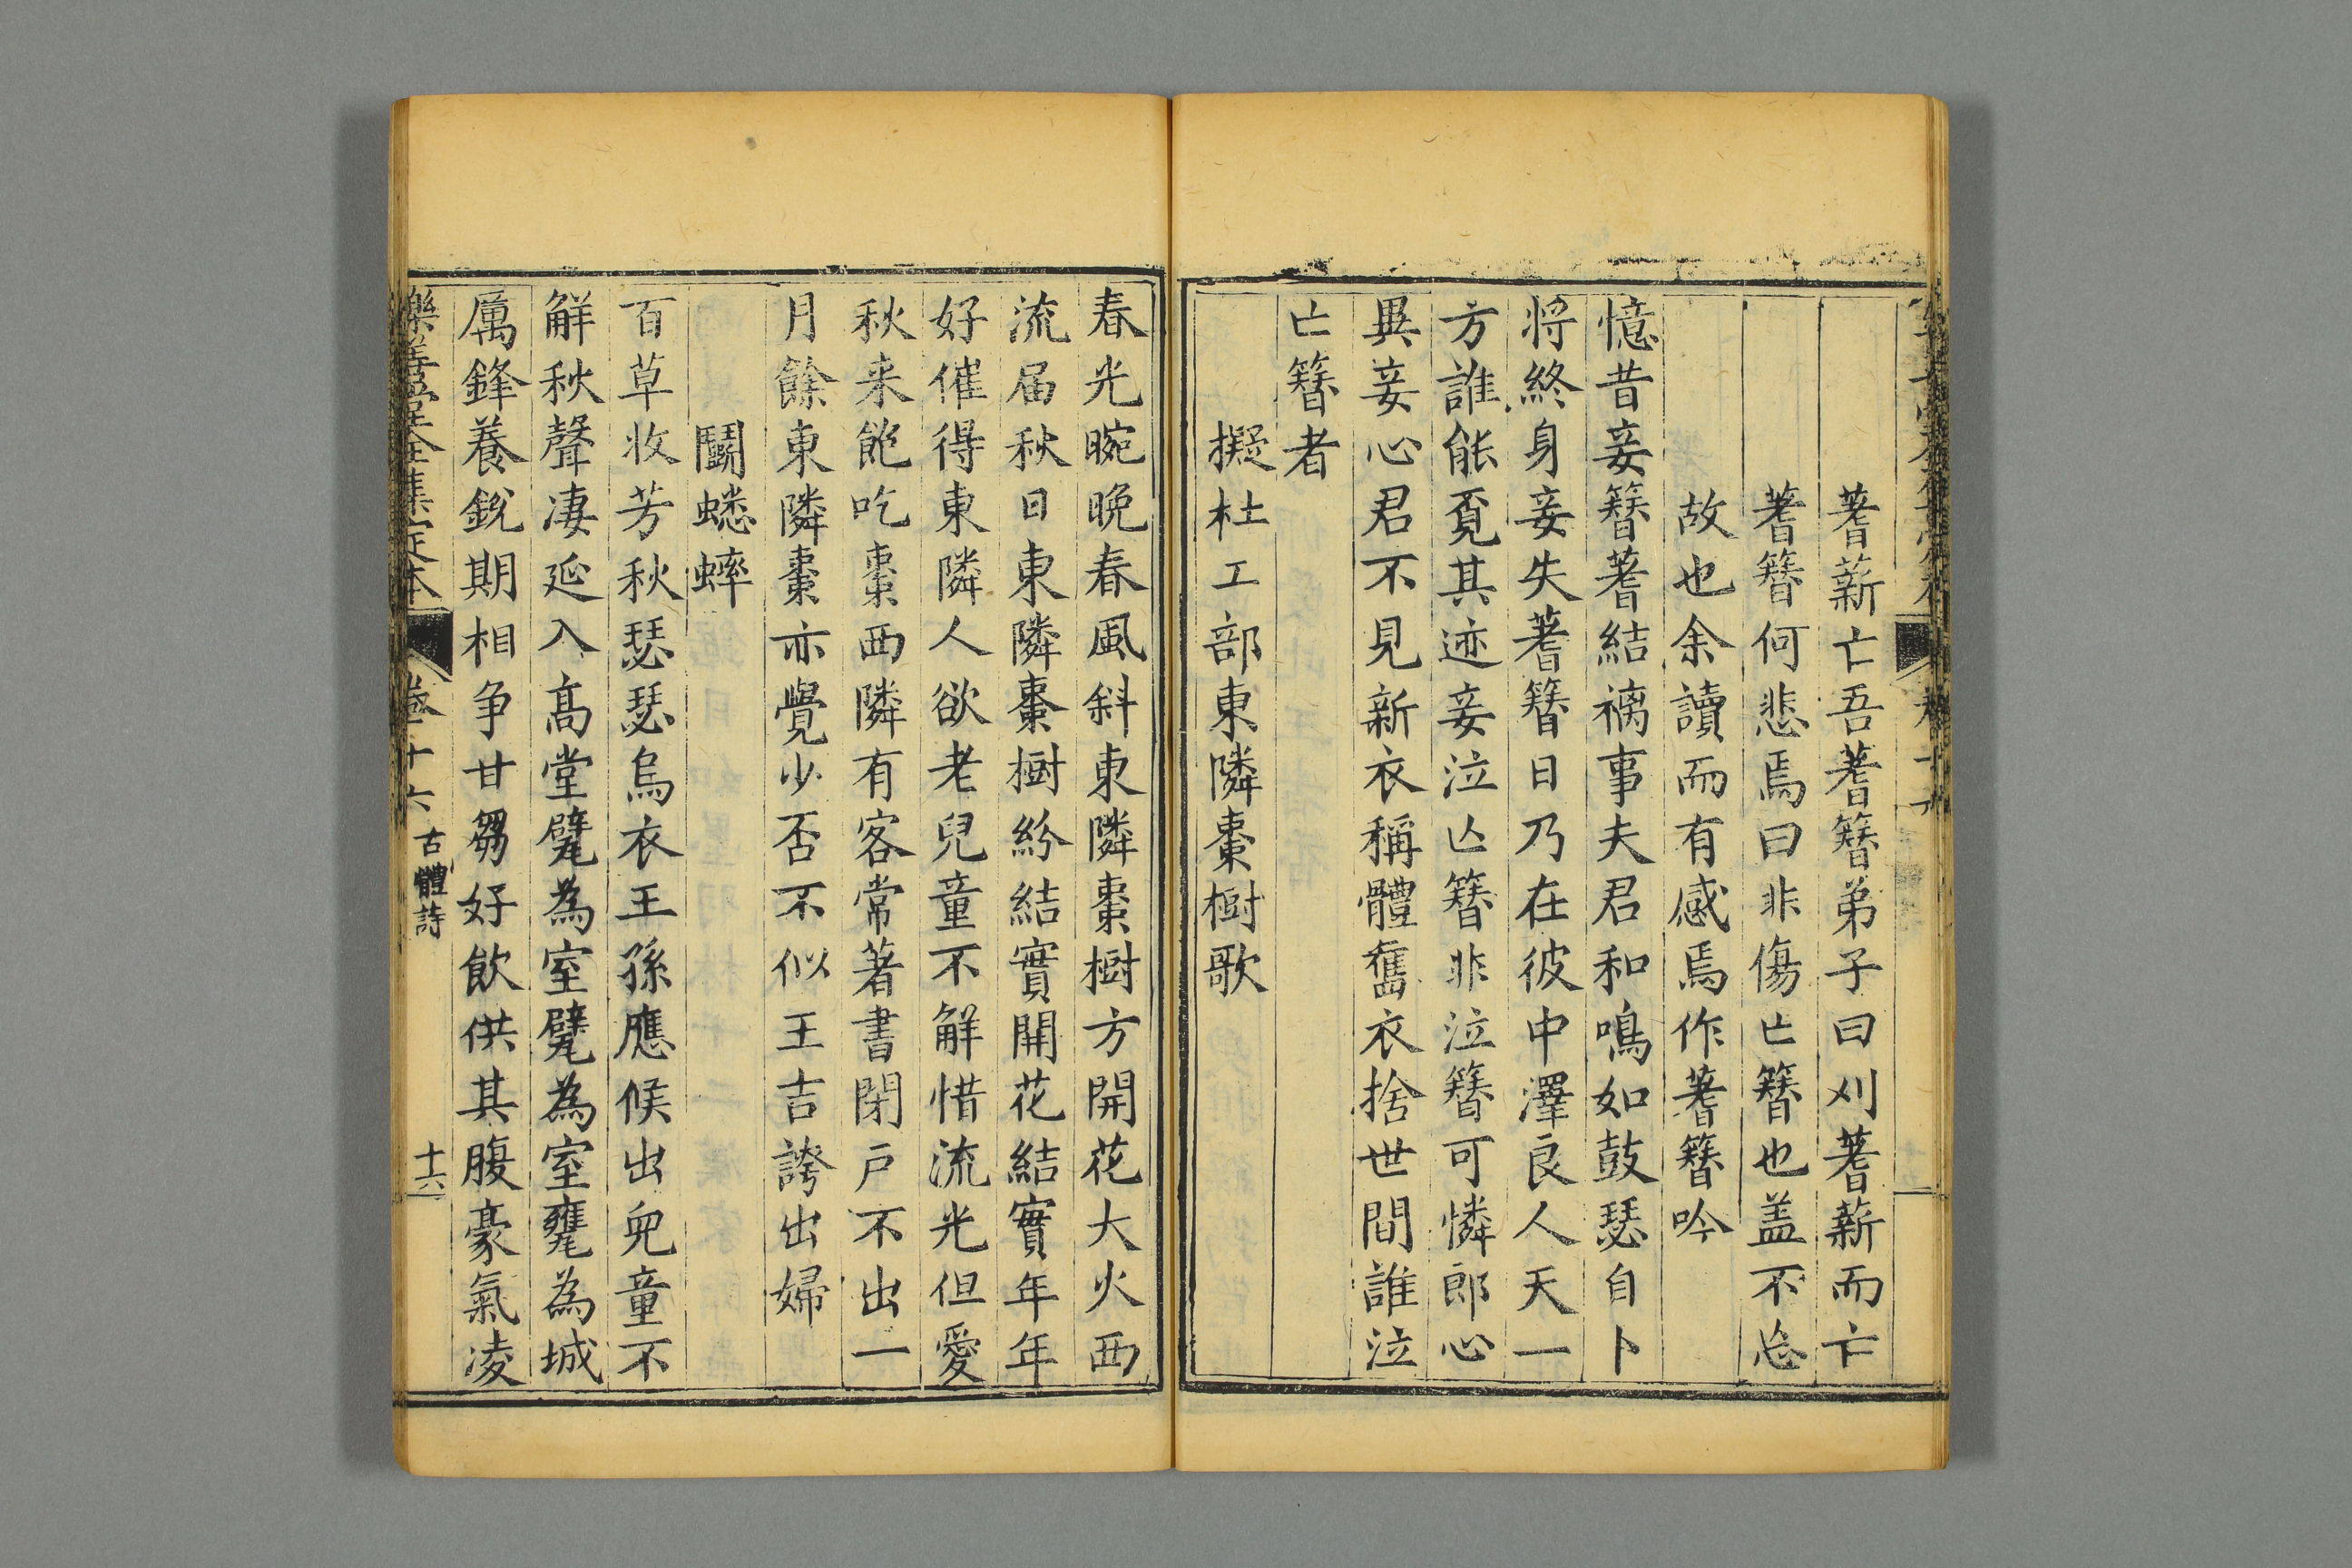 蓍薪亡吾蓍簪弟子曰刈蓍薪而亡
蓍簪何悲焉曰非傷亡簪也盖不忘
故也余讀而有感焉作蓍簪吟
憶昔妾簪蓍結褵事夫君和鳴如鼓瑟自卜
將終身妾失蓍簪日乃在彼中澤良人天一
方誰能覔其迹妾泣亡簪非泣簪可憐郎心
異妾心君不見新衣稱體舊衣捨世間誰泣
亡簪者
擬杜工部東隣棗樹歌
春光晼晚春風斜東隣棗樹方開花大火西
流届秋日東隣棗樹紛結實開花結實年年
好催得東隣人欲老兒童不解惜流光但愛
秋来飽吃棗西隣有客常著書閉戶不出一
月餘東隣棗亦覺少否不似王吉誇出婦
鬬蟋蟀
百草收芳秋瑟瑟烏衣王孫應候出兒童不
解秋聲凄延入高堂甓為室甓為室甕為城
厲鋒養銳期相争甘芻好飲供其腹豪氣凌
樂善堂全集定本 卷十六 古體詩 十六